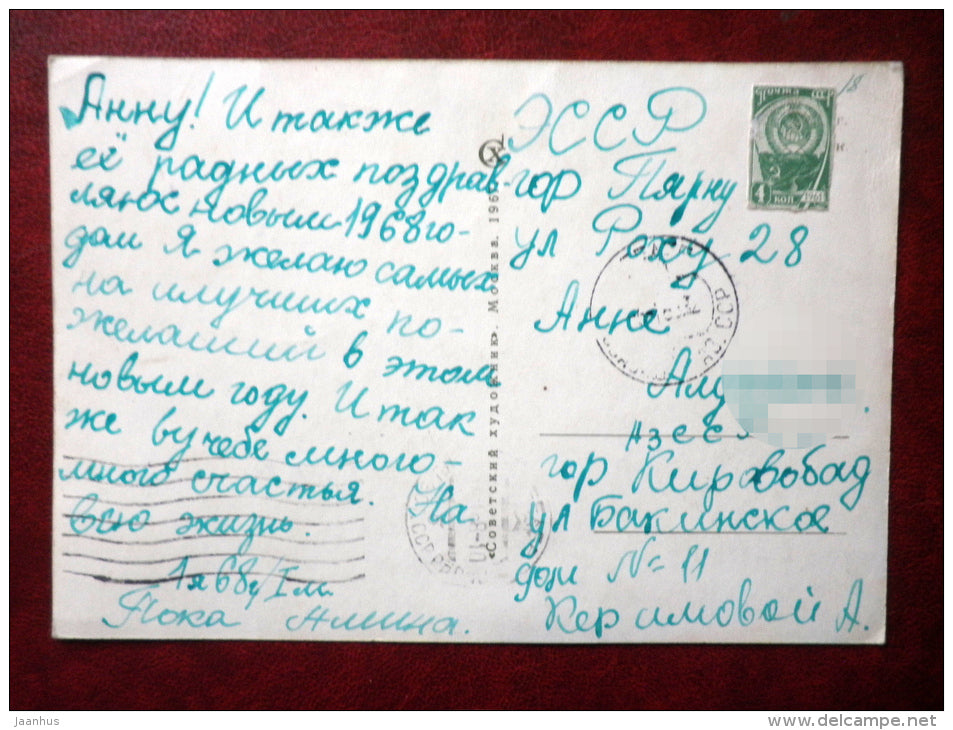 Анну! И также
её радных поздрав-
ляюх новым 1968 го-
дом Я желаю самых
на илучших по-
желаший в этом
новым году. И так
же вучебе много-
много счастья. На
всю жизнь.
1я 68г/I м.
Пока Амина.
«Советский художник». Москва. 196
ЭССР
гор Пярну
ул Роху 28
Анне
Азсс
гор Кировобад
ул Бакинское
дом № 11
Керимовой А.
Почта СССР
4
коп
1961
18
jaanhus
www.delcampe.net